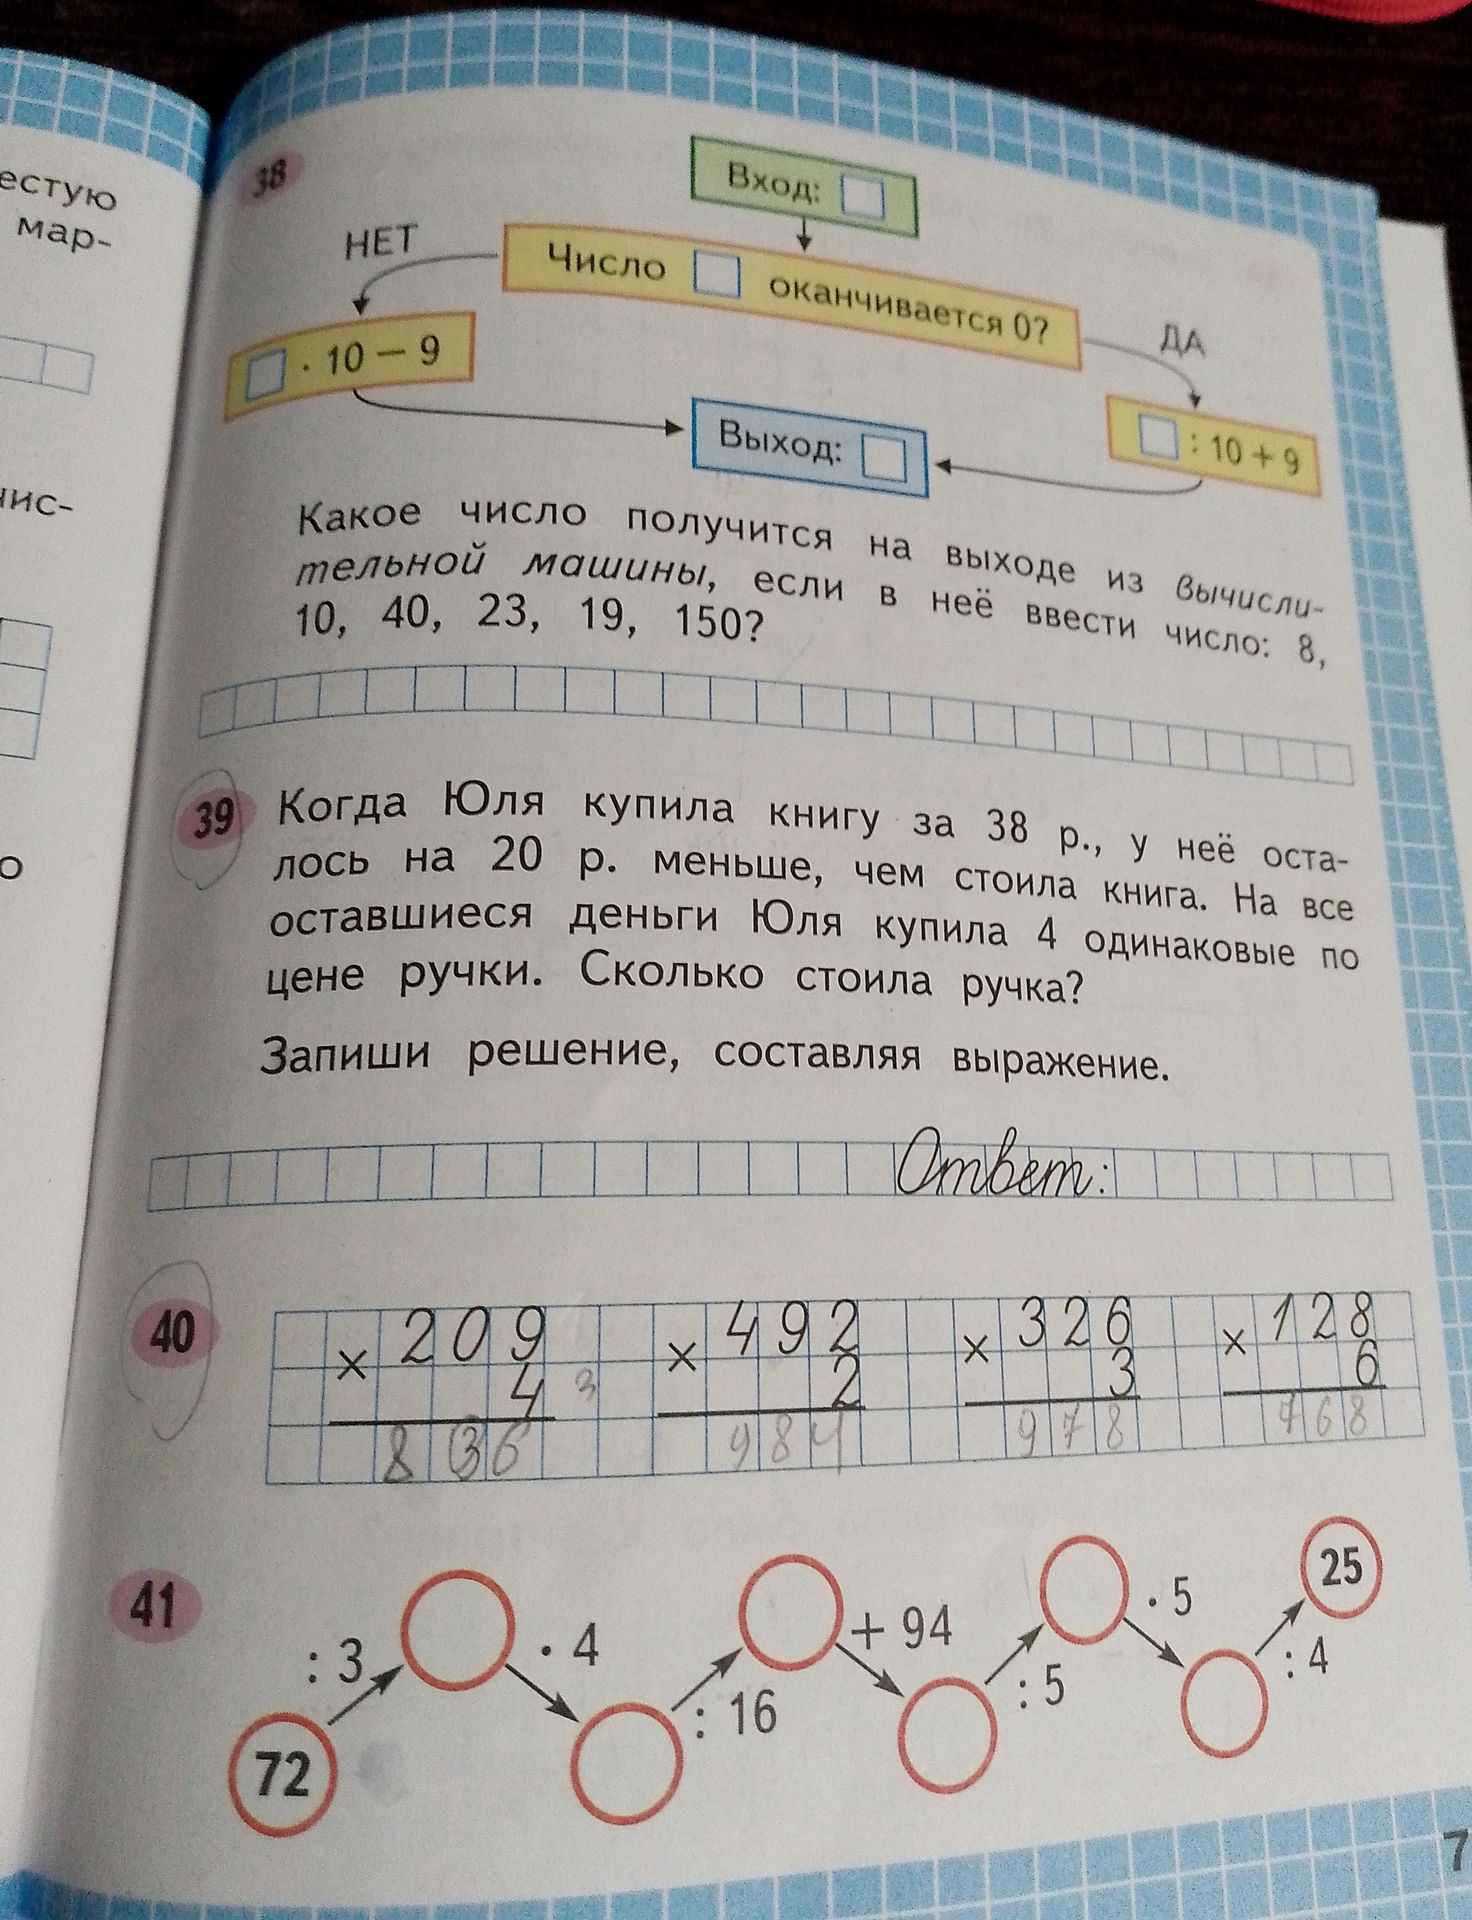 естую
мар-
нис-
о
38
Вход:
НЕТ
Число оканчивается 0?
ДА
· 10 − 9
: 10 + 9
Выход:
Какое число получится на выходе из вычисли-
тельной машины, если в неё ввести число: 8,
10, 40, 23, 19, 150?
39 Когда Юля купила книгу за 38 р., у неё оста-
лось на 20 р. меньше, чем стоила книга. На все
оставшиеся деньги Юля купила 4 одинаковые по
цене ручки. Сколько стоила ручка?
Запиши решение, составляя выражение.
Ответ:
40
× 209 × 492 × 326 × 128
4 3 2 3 6
836 984 978 768
41
72 : 3 · 4 : 16 + 94 : 5 · 5 : 4 25
7